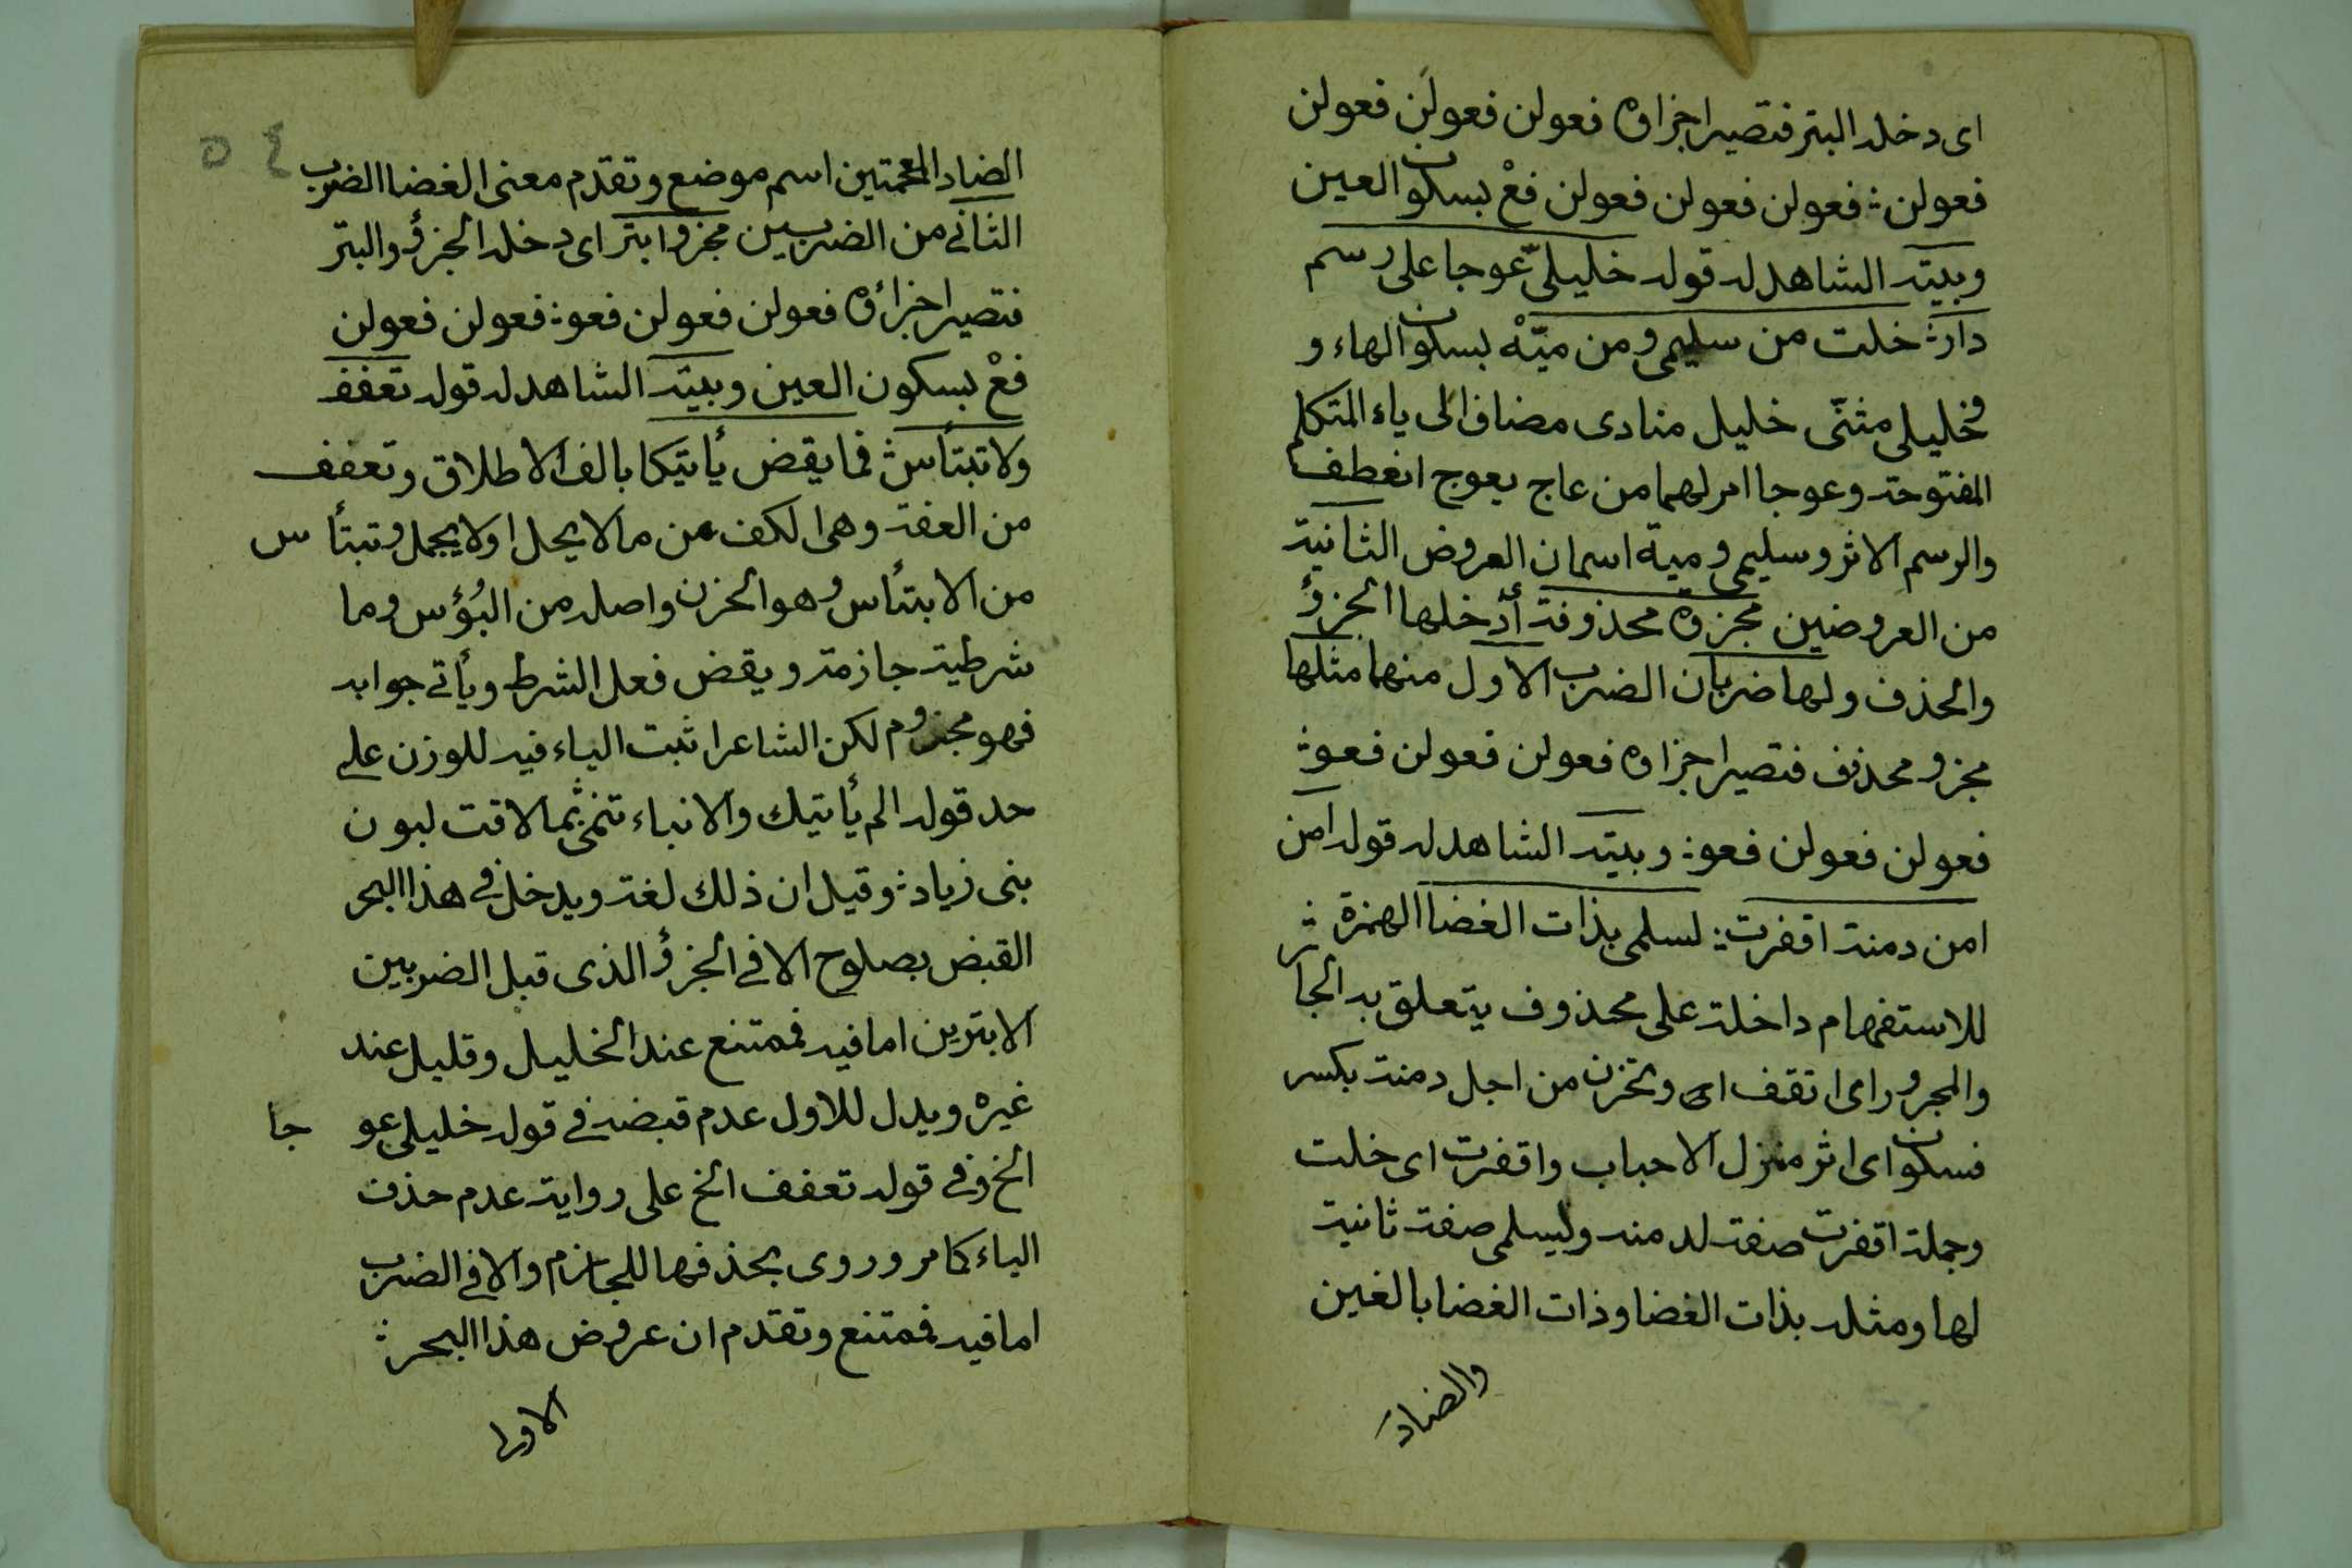 اى دخله البتر فتصير اجزاؤه فعولن فعولن فعولن
فعولن ؞ فعولن فعولن فعولن فعْ بسكون العين
وبيته الشاهد له قوله خليلىّ عوجا على رسم
دار ؞ خلت من سليمى ومن ميّهْ بسكون الهاء و
فخليلى مثنّى خليل منادى مضاف الى ياء المتكلم
المفتوحة وعوجا امر لهما من عاج يعوج انعطف
والرسم الاثر وسليمى ومية اسمان العروض الثانية
من العروضين مجزوة محذوفة أى دخلها الجزؤ
والحذف ولها ضربان الضرب الاول منهما مثلها
مجزو محذوف فتصير اجزاؤه فعولن فعولن فعو ؞
فعولن فعولن فعو ؞ وبيته الشاهد له قوله امن
امن دمنة اقفرت ؞ لسلمى بذات الغضا الهمزة
للاستفهام داخلة على محذوف يتعلق به الجار
والمجرور اى اتقف اى وتحزن من اجل دمنة بكسر
فسكون اى اثر منزل الاحباب واقفرت اى خلت
وجملة اقفرت صفة لدمنه ولسلمى صفة ثانية
لها ومثله بذات الغضا وذات الغضا بالغين
والضاد
٥٤
الضاد المعجمتين اسم موضع وتقدم معنى الغضا الضرب
الثانى من الضربين مجزو ابتر اى دخله الجزؤ والبتر
فتصير اجزائه فعولن فعولن فعو ؞ فعولن فعولن
فعْ بسكون العين وبيته الشاهد له قوله تعفف
ولا تبتأس ؞ فما يقض يأتيكا بالف الاطلاق وتعفف
من العفة وهى الكف عن ما لا يحل او لا يجمل وتبتأس
من الابتئاس وهو الحزن واصله من البُؤس وما
شرطية جازمة ويقض فعل الشرط ويأتى جوابه
فهو مجزوم لكن الشاعر اثبت الياء فيه للوزن على
حد قوله الم يأتيك والانباء تنمى ؞ بما لاقت لبون
بنى زياد ؞ وقيل ان ذلك لغة ويدخل فى هذا البحر
القبض بصلوح الا فى الجزؤ الذى قبل الضربين
الابترين اما فيه فممتنع عند الخليل وقليل عند
غيره ويدل للاول عدم قبضه فى قوله خليلى عوجا
الخ وفى قوله تعفف الخ على رواية عدم حذف
الياء كما مر وروى بحذفها للجازم والا فى الضرب
اما فيه فممتنع وتقدم ان عروض هذا البحر ؞
الاولى